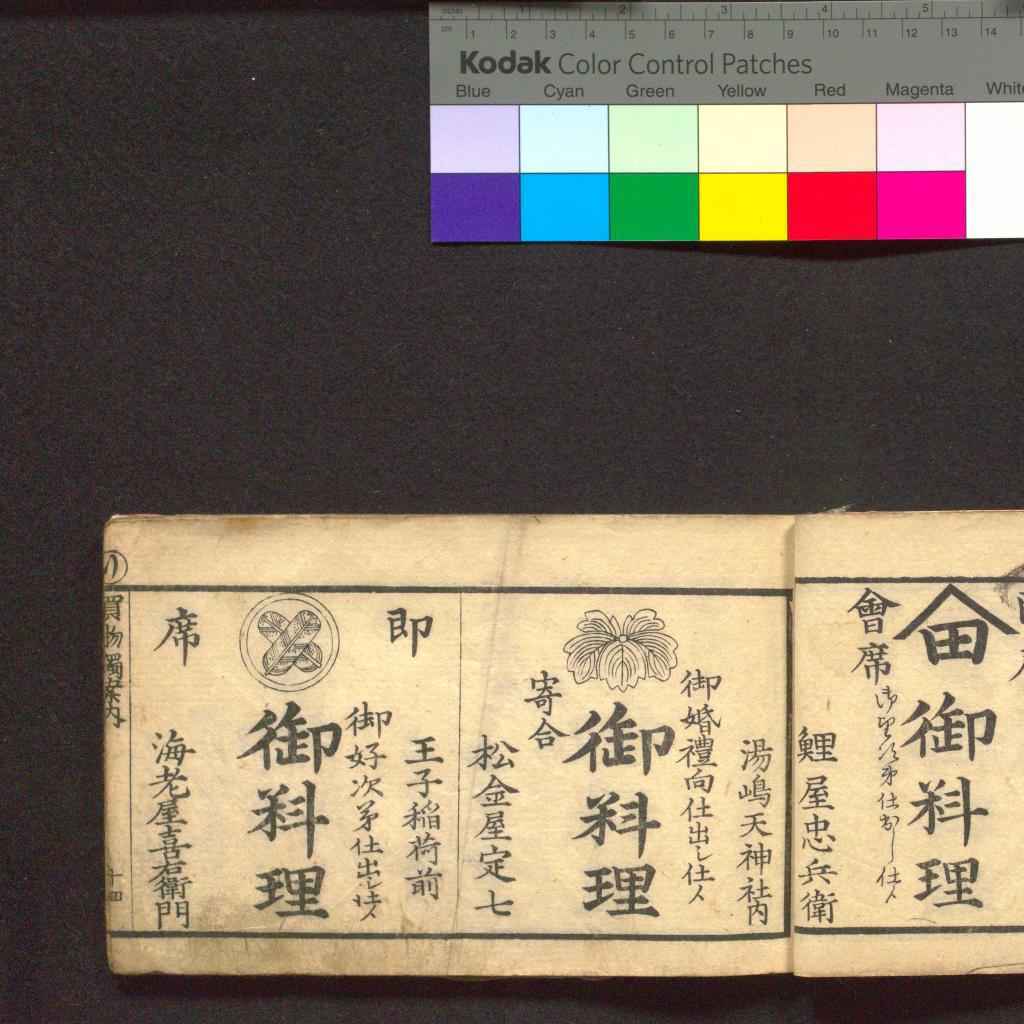 inches 1 2 3 4 5
cm 1 2 3 4 5 6 7 8 9 10 11 12 13 14
Kodak Color Control Patches
Blue Cyan Green Yellow Red Magenta White
會席
田
御料理
鯉屋忠兵衛
湯嶋天神社内
御婚禮向仕出し仕候
御料理
寄合
松金屋定七
即
王子稲荷前
御好次第仕出し仕候
御料理
席
海老屋喜右衛門
買物獨案内
十四